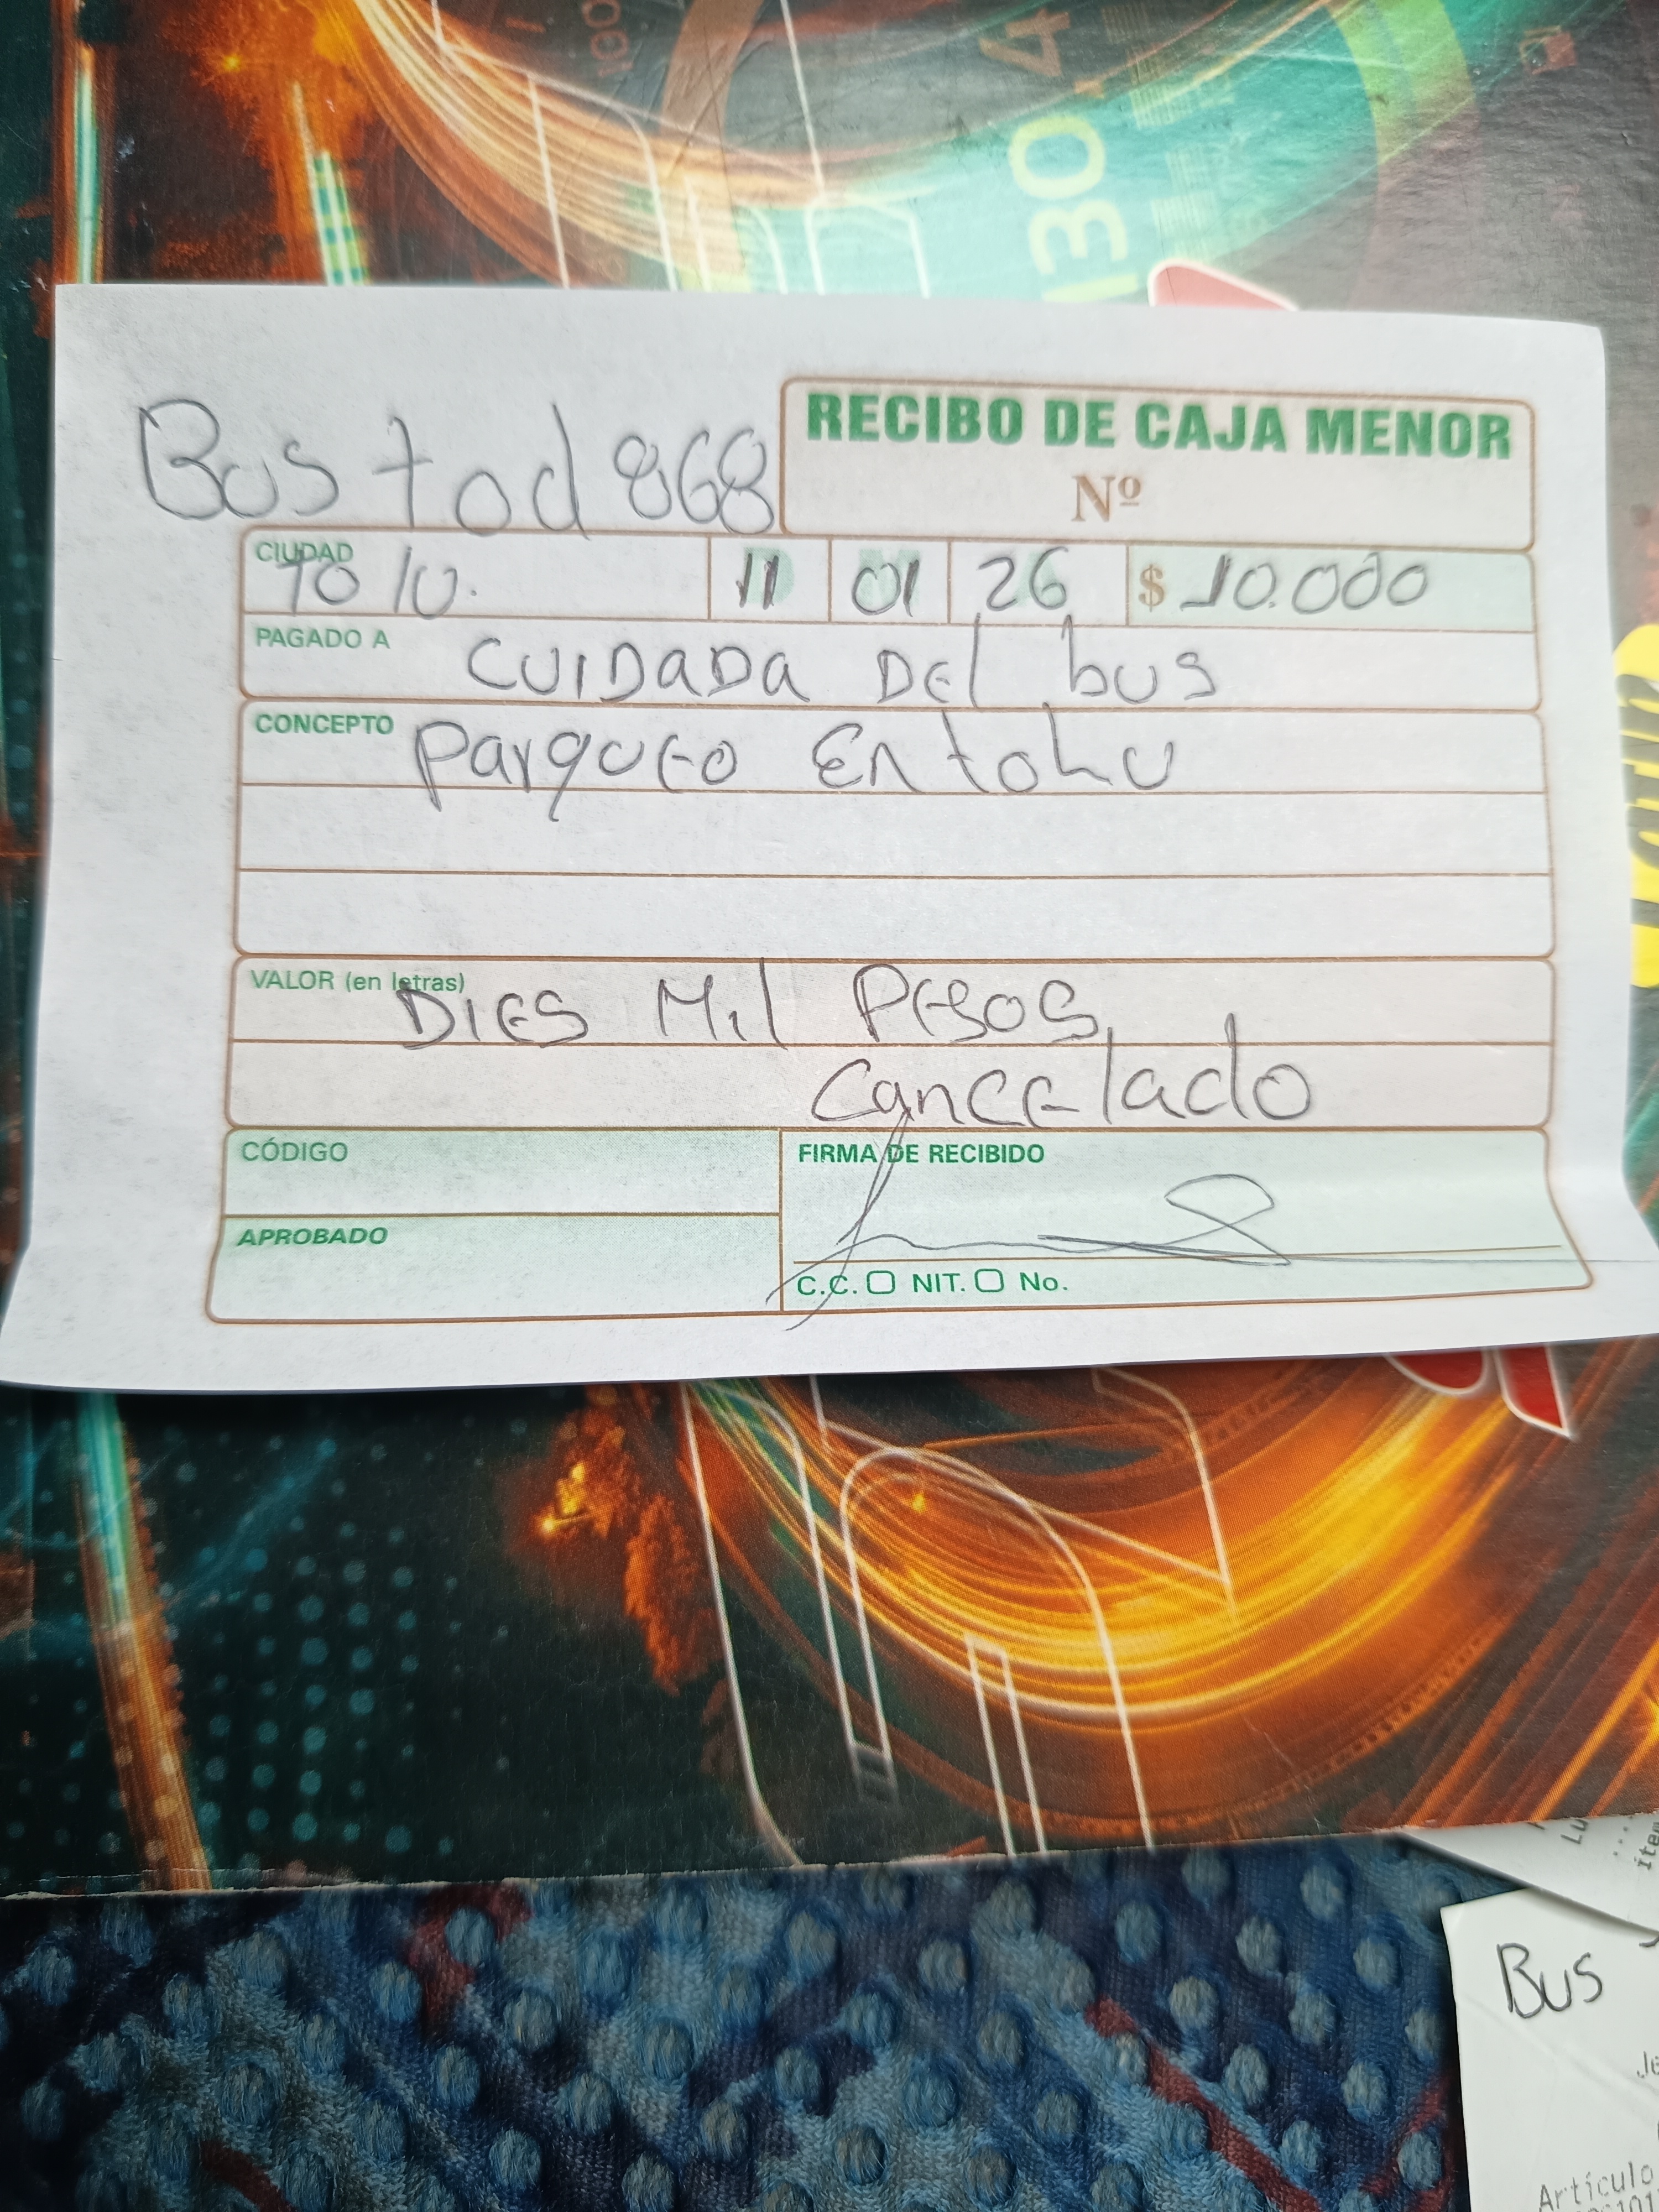 100
4
130
Bus tod 868
RECIBO DE CAJA MENOR
Nº
CIUDAD
11 01 26 $ 10.000
PAGADO A CUIDADA DEL bus
CONCEPTO Parqueo En tolu
VALOR (en letras) DIES Mil PESOS
Cancelado
CÓDIGO
FIRMA DE RECIBIDO
APROBADO
C.C. NIT. No.
Bus
Artículo